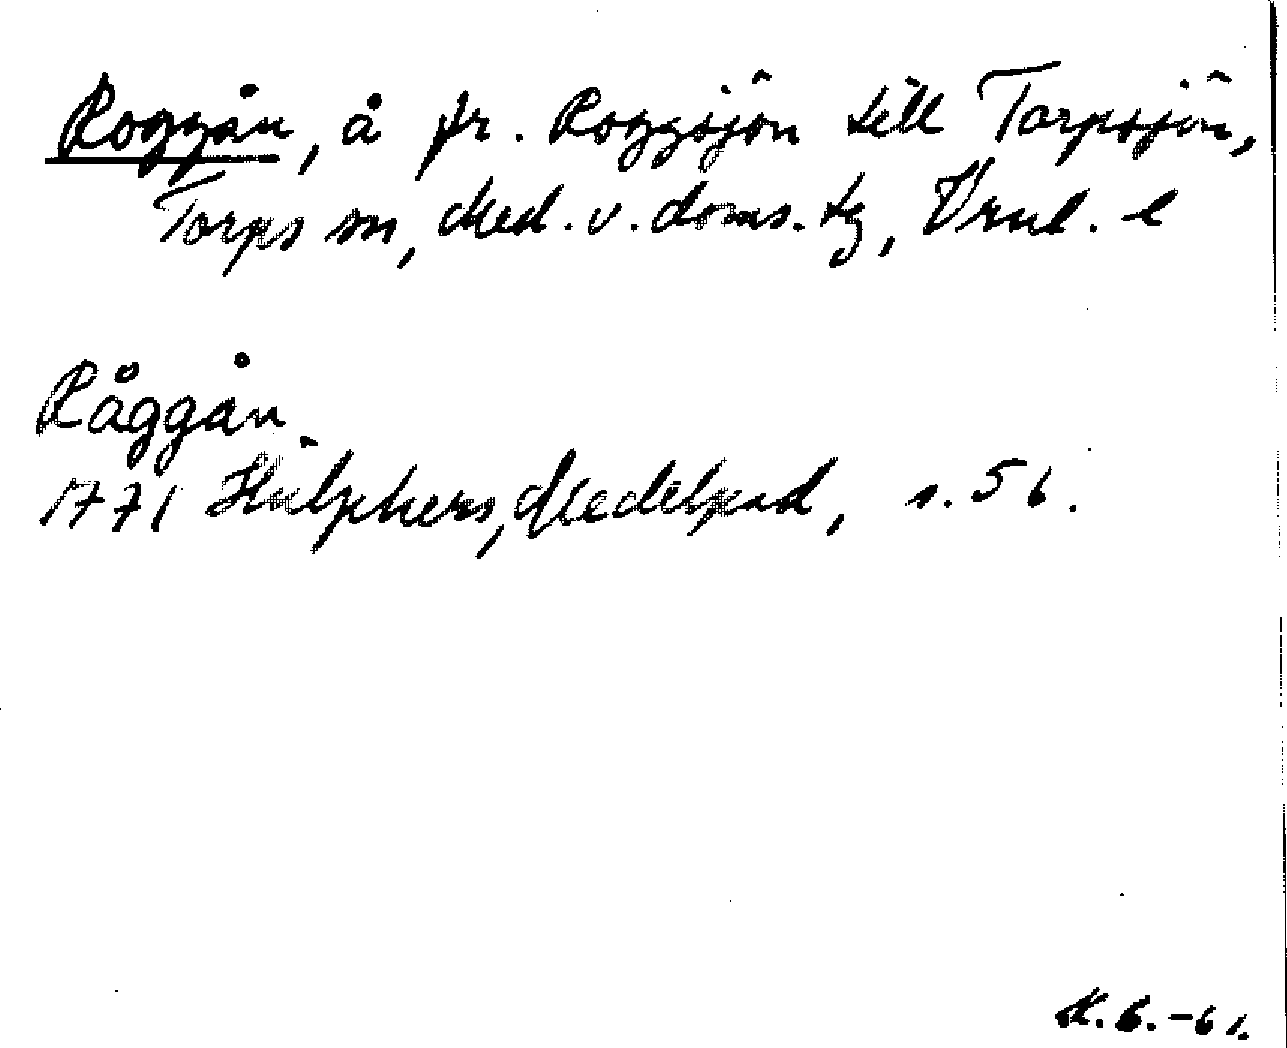 Roggån, å fr. Roggsjön till Torpsjön,
Torps sn, Med. v. doms. tg, Vrnl. l
Råggån
1771 Hülphers, Medelpad, s. 56.
K.G.-61.